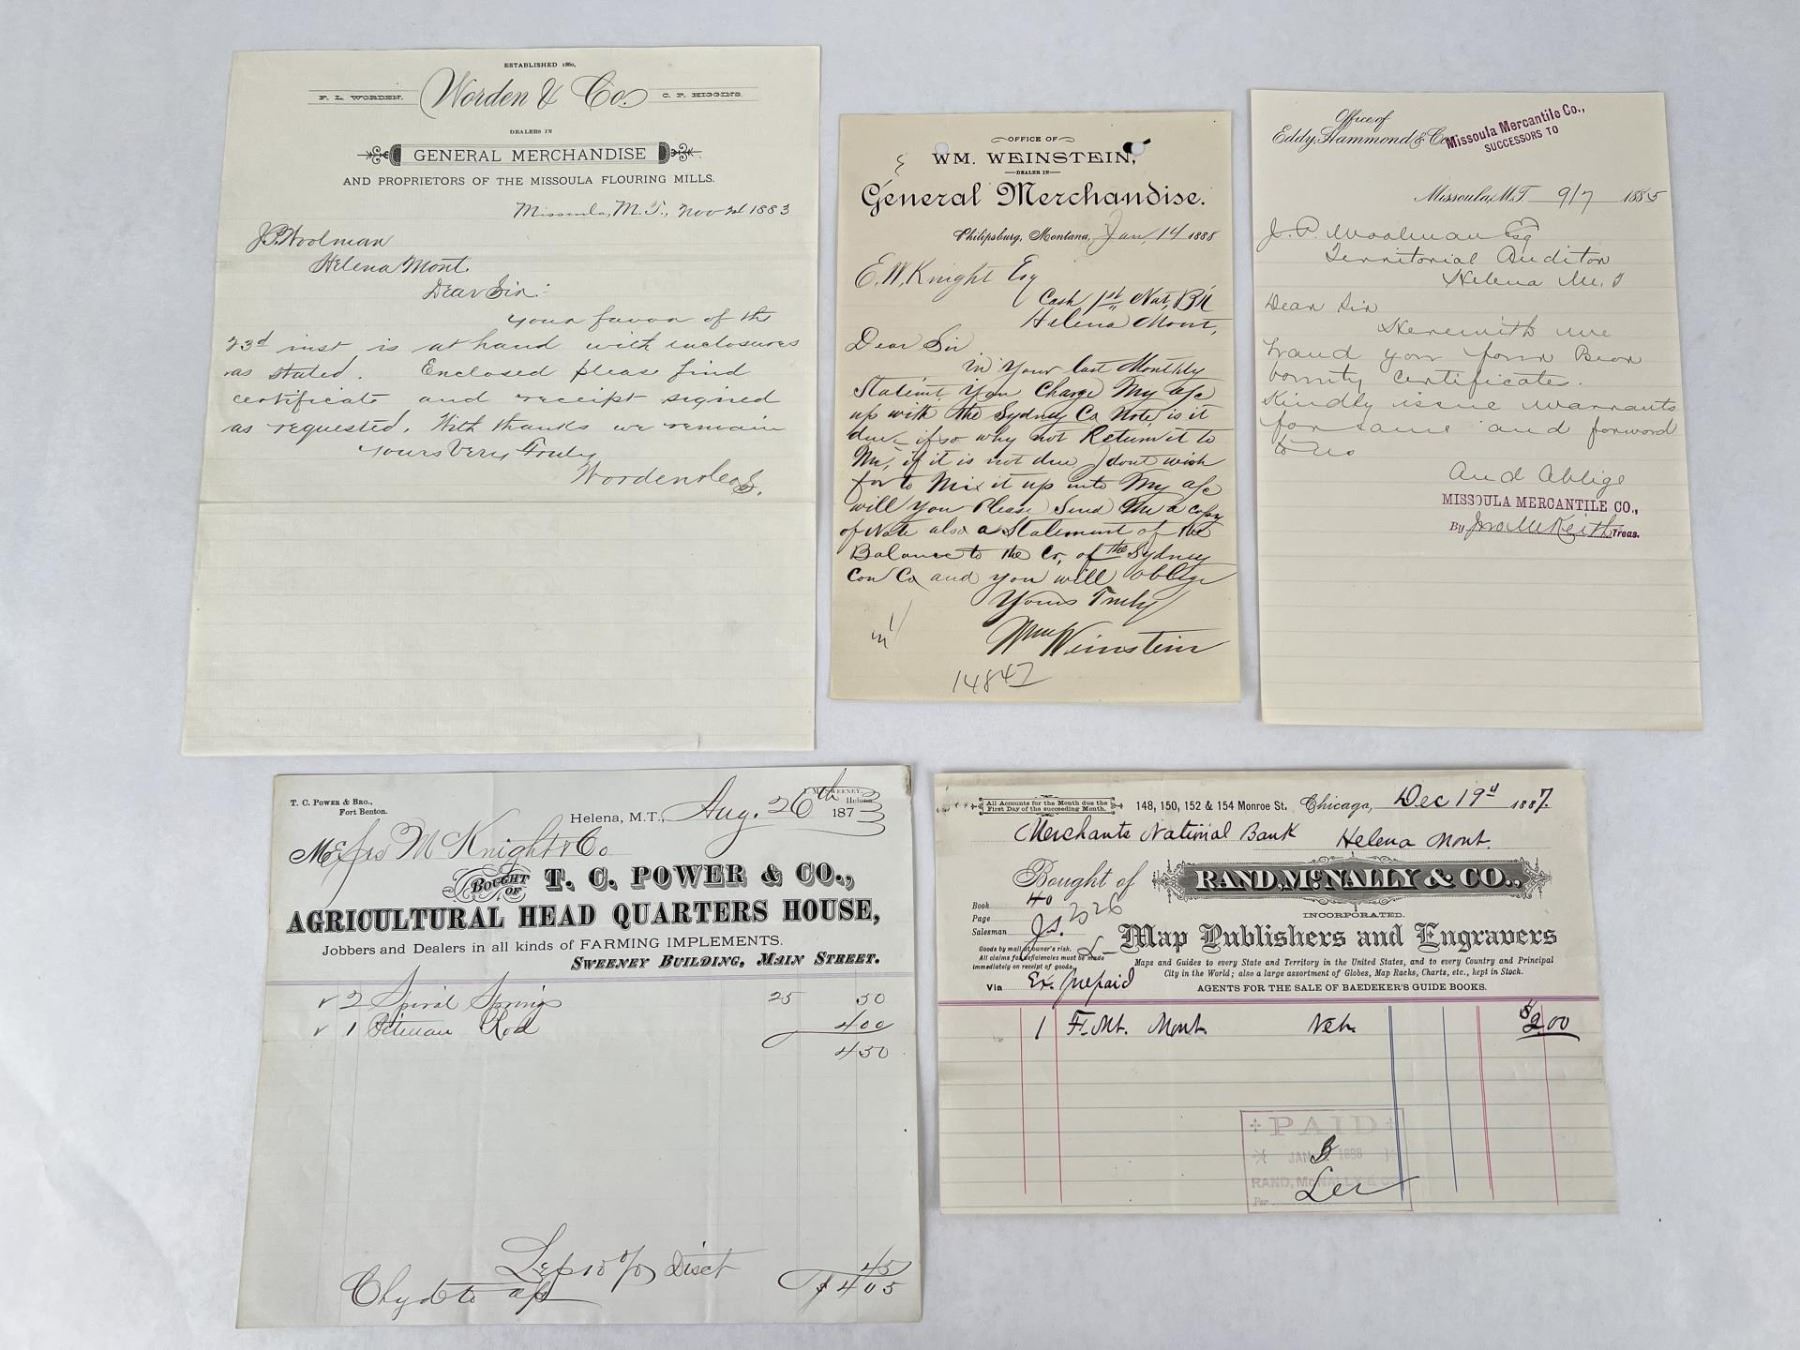 ESTABLISHED 1860,
F. L. WORDEN. Worden & Co. C. P. HIGGINS.
DEALERS IN
GENERAL MERCHANDISE
AND PROPRIETORS OF THE MISSOULA FLOURING MILLS.
Missoula, M.T., Nov 1883
J.P. Woolman
Helena Mont.
Dear Sir:
Your favor of the
23d inst is at hand with enclosures
as stated. Enclosed please find
certificate and receipt signed
as requested. With thanks we remain
Yours Very Truly
Worden & Co
OFFICE OF
WM. WEINSTEIN,
DEALER IN
General Merchandise.
Philipsburg, Montana, Jan, 14 1888
E.W. Knight Esq
Cash 1st Nat, Bk
Helena Mont,
Dear Sir
in Your last Monthly
Statemt, you Charge My a/c
up with the Sydney Co Note, is it
due if so why not Return it to
Me, if it is not due I dont wish
for to Mix it up into My a/c
will you Please Send Me a copy
of Note also a Statement of the
Balance to the Cr, of the Sydney
Con Co, and you will oblige
Yours Truly
Wm Weinstein
14847
Office of
Eddy, Hammond & Co
Missoula Mercantile Co.,
SUCCESSORS TO
Missoula, M.T. 9/7 1885
J. P. Woolman Esq
Territorial Auditor
Helena M. T
Dear Sir
Herewith we
hand you four Bear
bounty certificates.
Kindly issue warrants
for same and forword
to us
And Oblige
MISSOULA MERCANTILE CO.,
By Jno McKeith Treas.
T. C. POWER & BRO.,
Fort Benton.
Helena
Helena, M.T., Aug. 26th 187
Messrs McKnight & Co
BOUGHT OF T. C. POWER & CO.,
AGRICULTURAL HEAD QUARTERS HOUSE,
Jobbers and Dealers in all kinds of FARMING IMPLEMENTS.
SWEENEY BUILDING, MAIN STREET.
√ 2 Spiral Springs 25 50
√ 1 Pitman Rod 400
450
Less 10 % Disct 45
Chgd to a/c $405
All Accounts for the Month due the
First Day of the succeeding Month.
148, 150, 152 & 154 Monroe St. Chicago, Dec 19th 1887.
Merchants National Bank Helena Mont.
Bought of RAND, McNALLY & CO.,
INCORPORATED.
Book 40
Page 2026
Salesman
Map Publishers and Engravers
Goods by mail at owner's risk.
All claims for deficiencies must be made
immediately on receipt of goods.
Maps and Guides to every State and Territory in the United States, and to every Country and Principal
City in the World; also a large assortment of Globes, Map Racks, Charts, etc., kept in Stock.
Via Ex. prepaid
AGENTS FOR THE SALE OF BAEDEKER'S GUIDE BOOKS.
1 F. Mt. Mont. Net. $2.00
PAID
JAN 1888
RAND, McNALLY & CO
Per